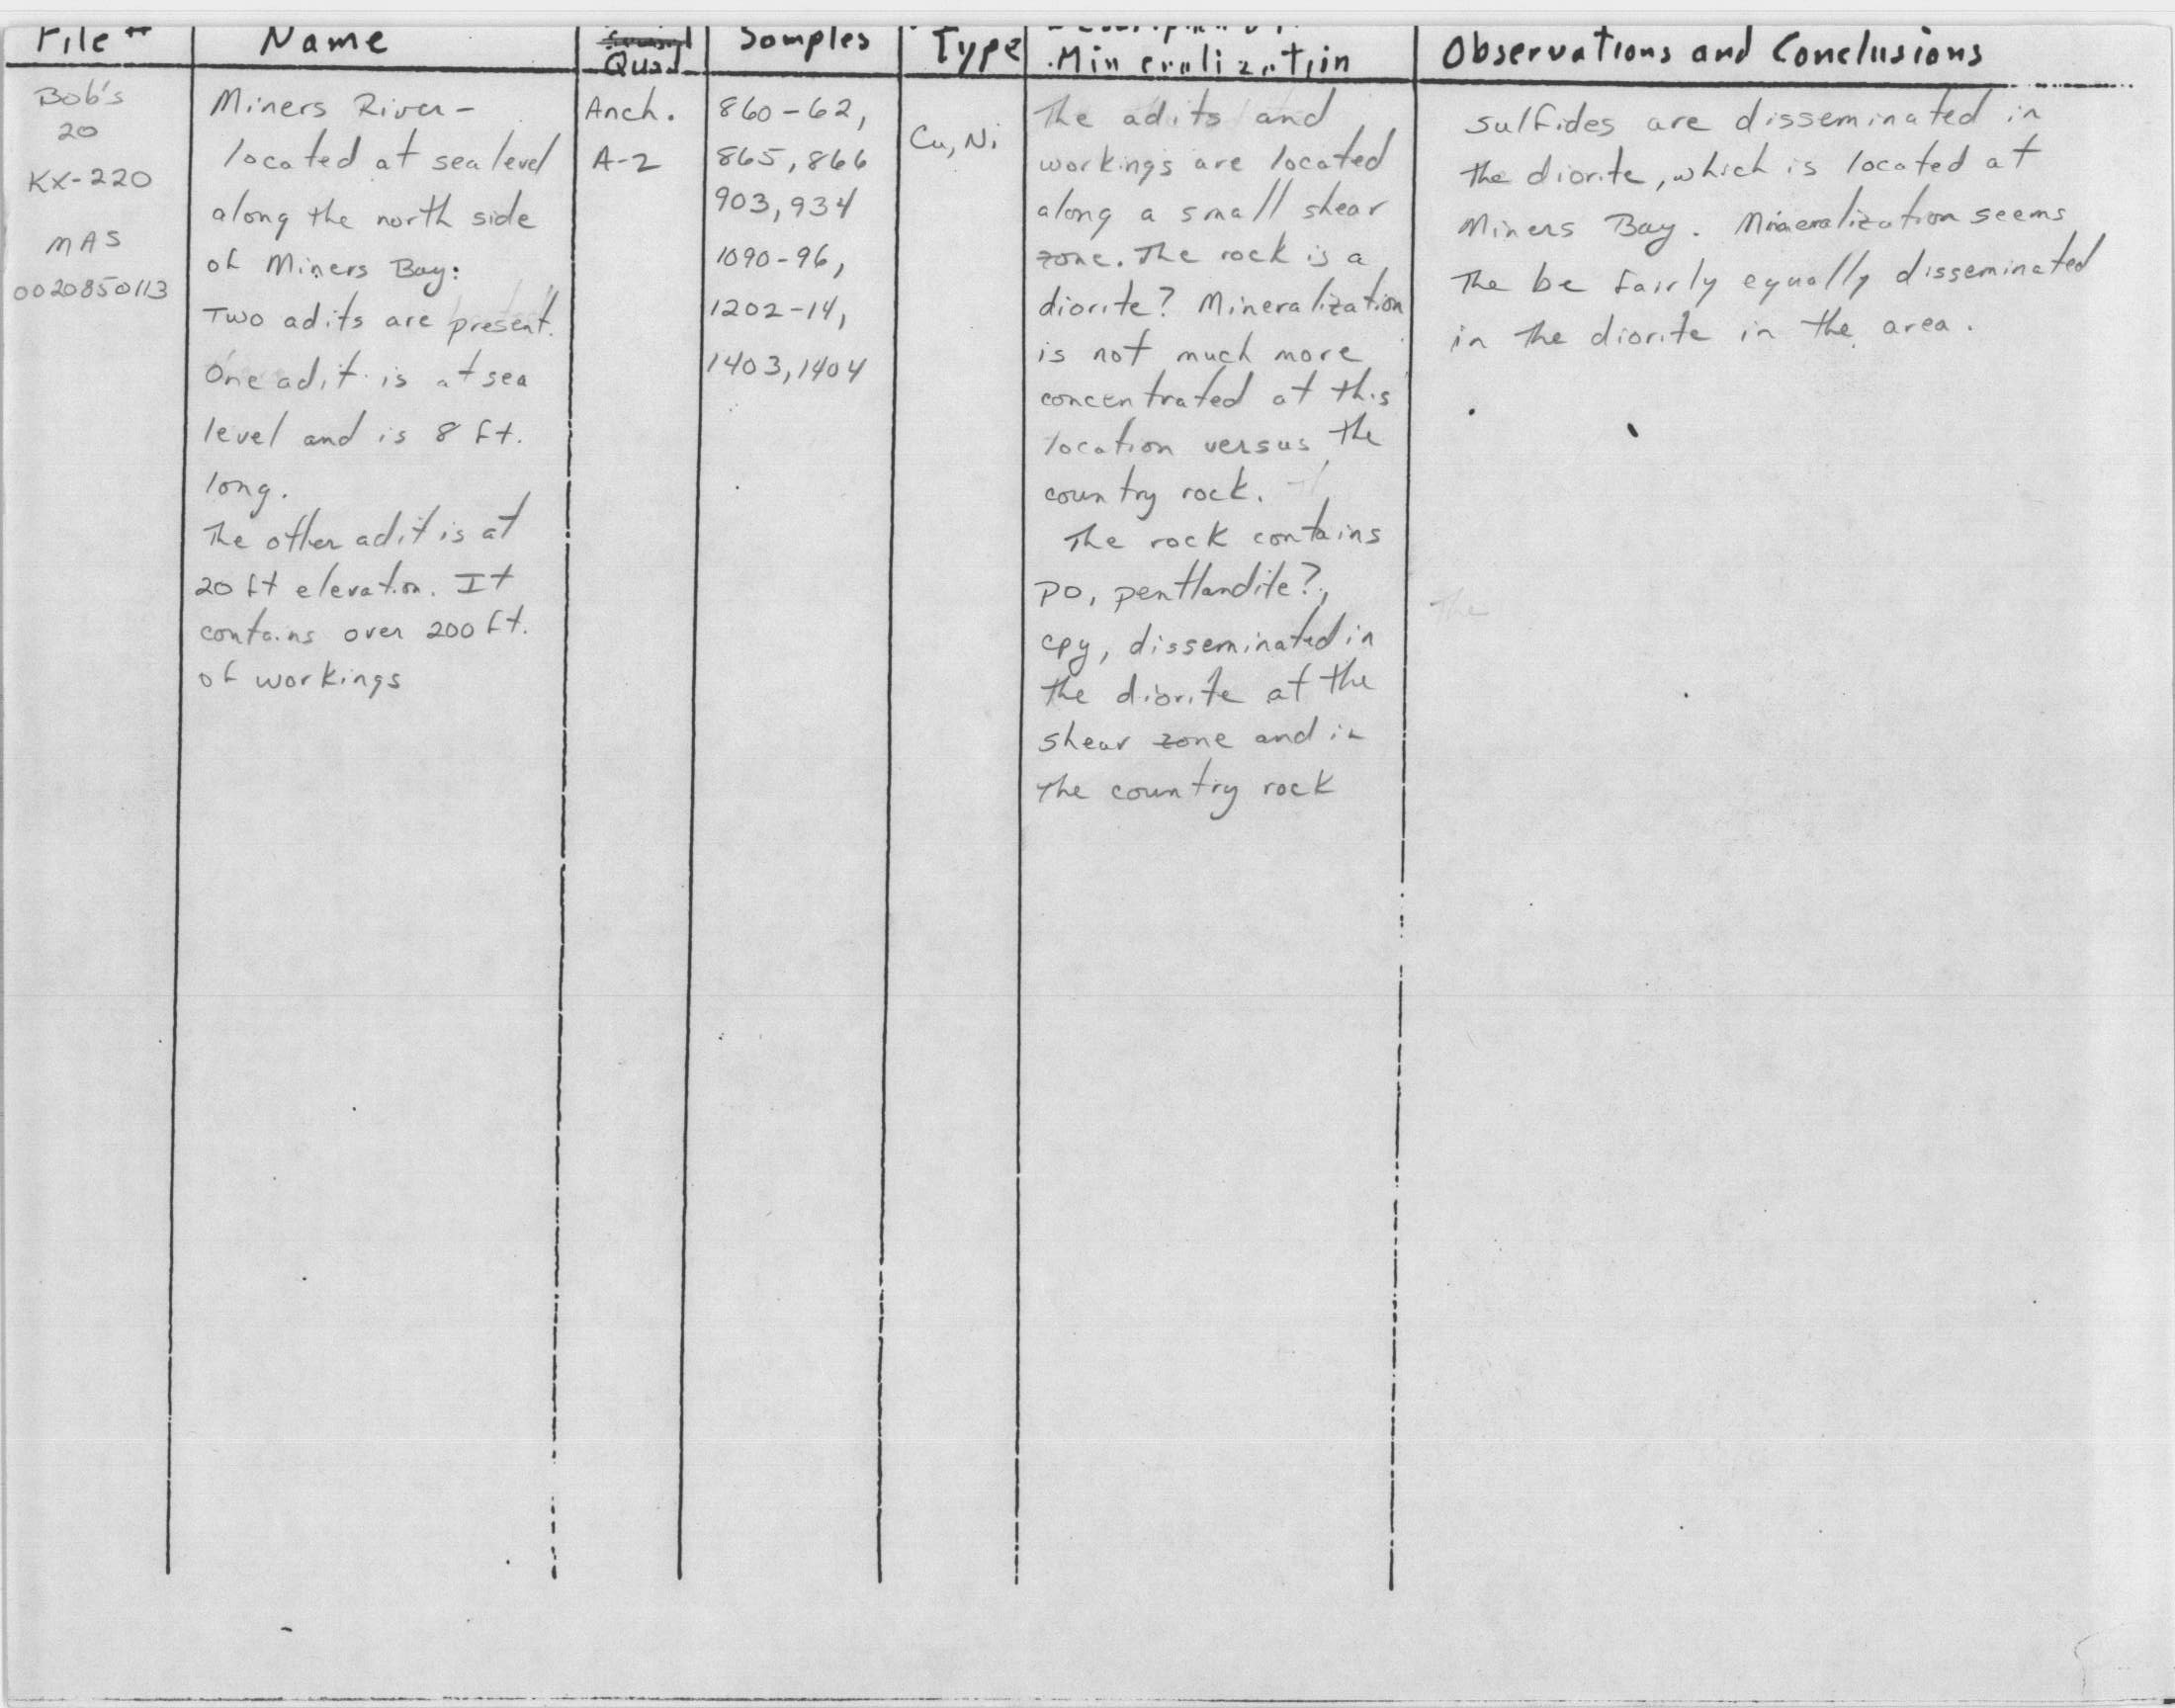 File #
Name
Quad
Samples
Type
Mineralization
Observations and Conclusions
Bob's
20
KX-220
MAS
0020850113
Miners River -
located at sea level
along the north side
of Miners Bay:
Two adits are present.
One adit is at sea
level and is 8 ft.
long.
The other adit is at
20 ft elevation. It
contains over 200 ft.
of workings
Anch.
A-2
860-62,
865, 866
903, 934
1090-96,
1202-14,
1403, 1404
Cu, Ni
The adits and
workings are located
along a small shear
zone. The rock is a
diorite? Mineralization
is not much more
concentrated at this
location versus the
country rock.
The rock contains
po, pentlandite?,
cpy, disseminated in
the diorite at the
shear zone and in
the country rock
sulfides are disseminated in
the diorite, which is located at
Miners Bay. Mineralization seems
the be fairly equally disseminated
in the diorite in the area.
The